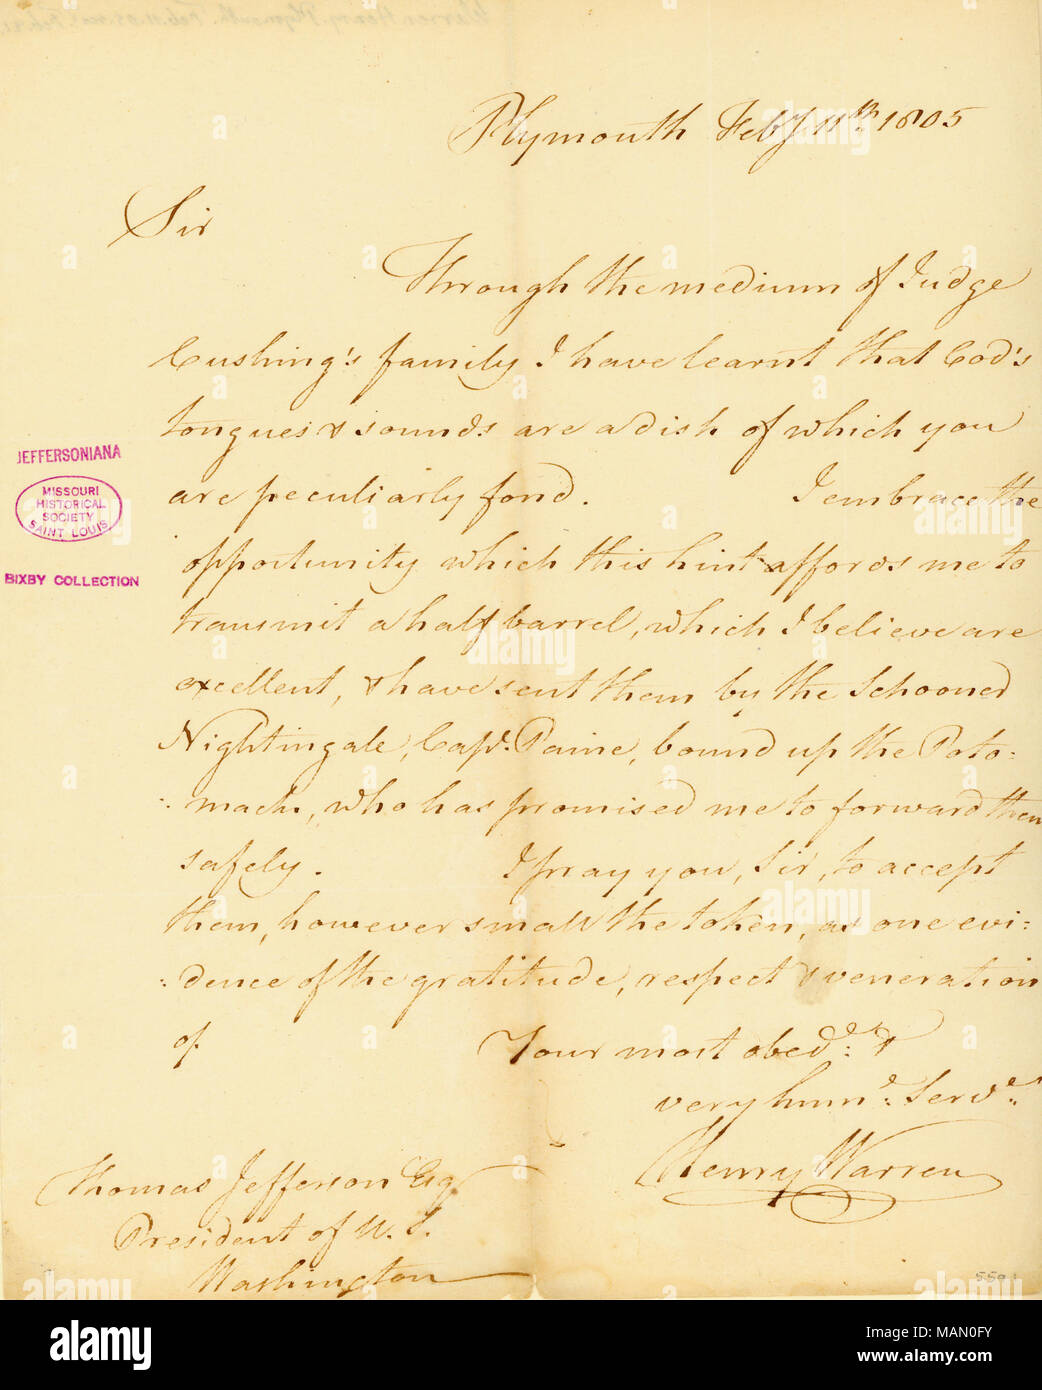 Plymouth Feby 11th. 1805
Sir
Through the medium of Judge
Cushing's family I have learnt that Cod's
tongues & sounds are a dish of which you
are peculiarly fond. I embrace the
opportunity which this hint affords me to
transmit a half barrel, which I believe are
excellent, & have sent them by the Schooner
Nightingale, Capt. Paine, bound up the Poto:
:mack, who has promised me to forward them
safely. I pray you, Sir, to accept
them, however small the token, as one evi:
:dence of the gratitude, respect & veneration
of Your most obedt: &
very hume: Serve:
Henry Warren
Thomas Jefferson Esq
President of U. S.
Washington
JEFFERSONIANA
MISSOURI
HISTORICAL
SOCIETY
SAINT LOUIS
BIXBY COLLECTION
alamy
Image ID: MAN0FY
www.alamy.com